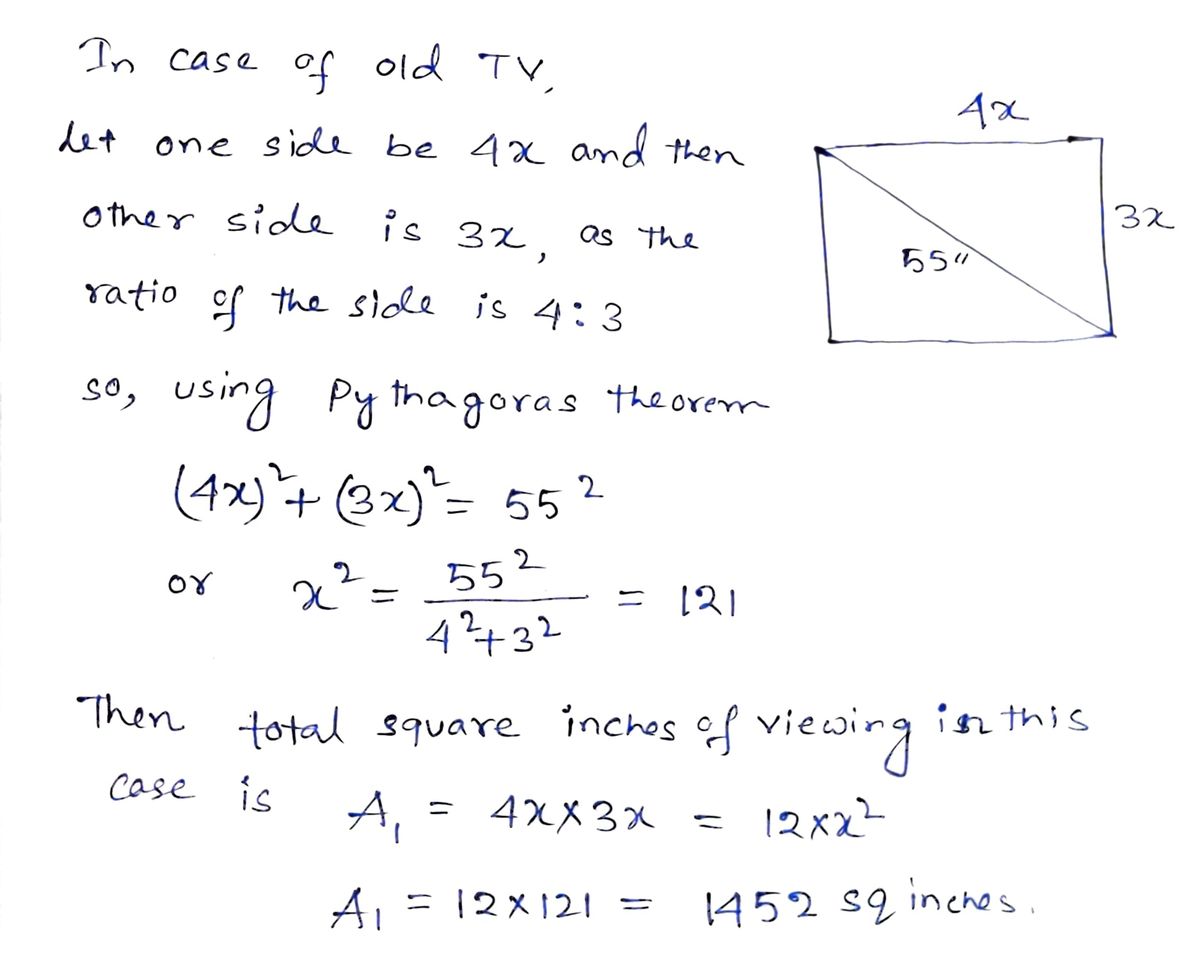 In case of old TV,
4x
Let one side be 4x and then
other side is 3x, as the
3x
55"
ratio of the side is 4:3
so, using Pythagoras theorem
(4x)² + (3x)² = 55²
or x² = 55² / 4²+3² = 121
Then total square inches of viewing in this
case is A₁ = 4x×3x = 12×x²
A₁ = 12×121 = 1452 sq inches.